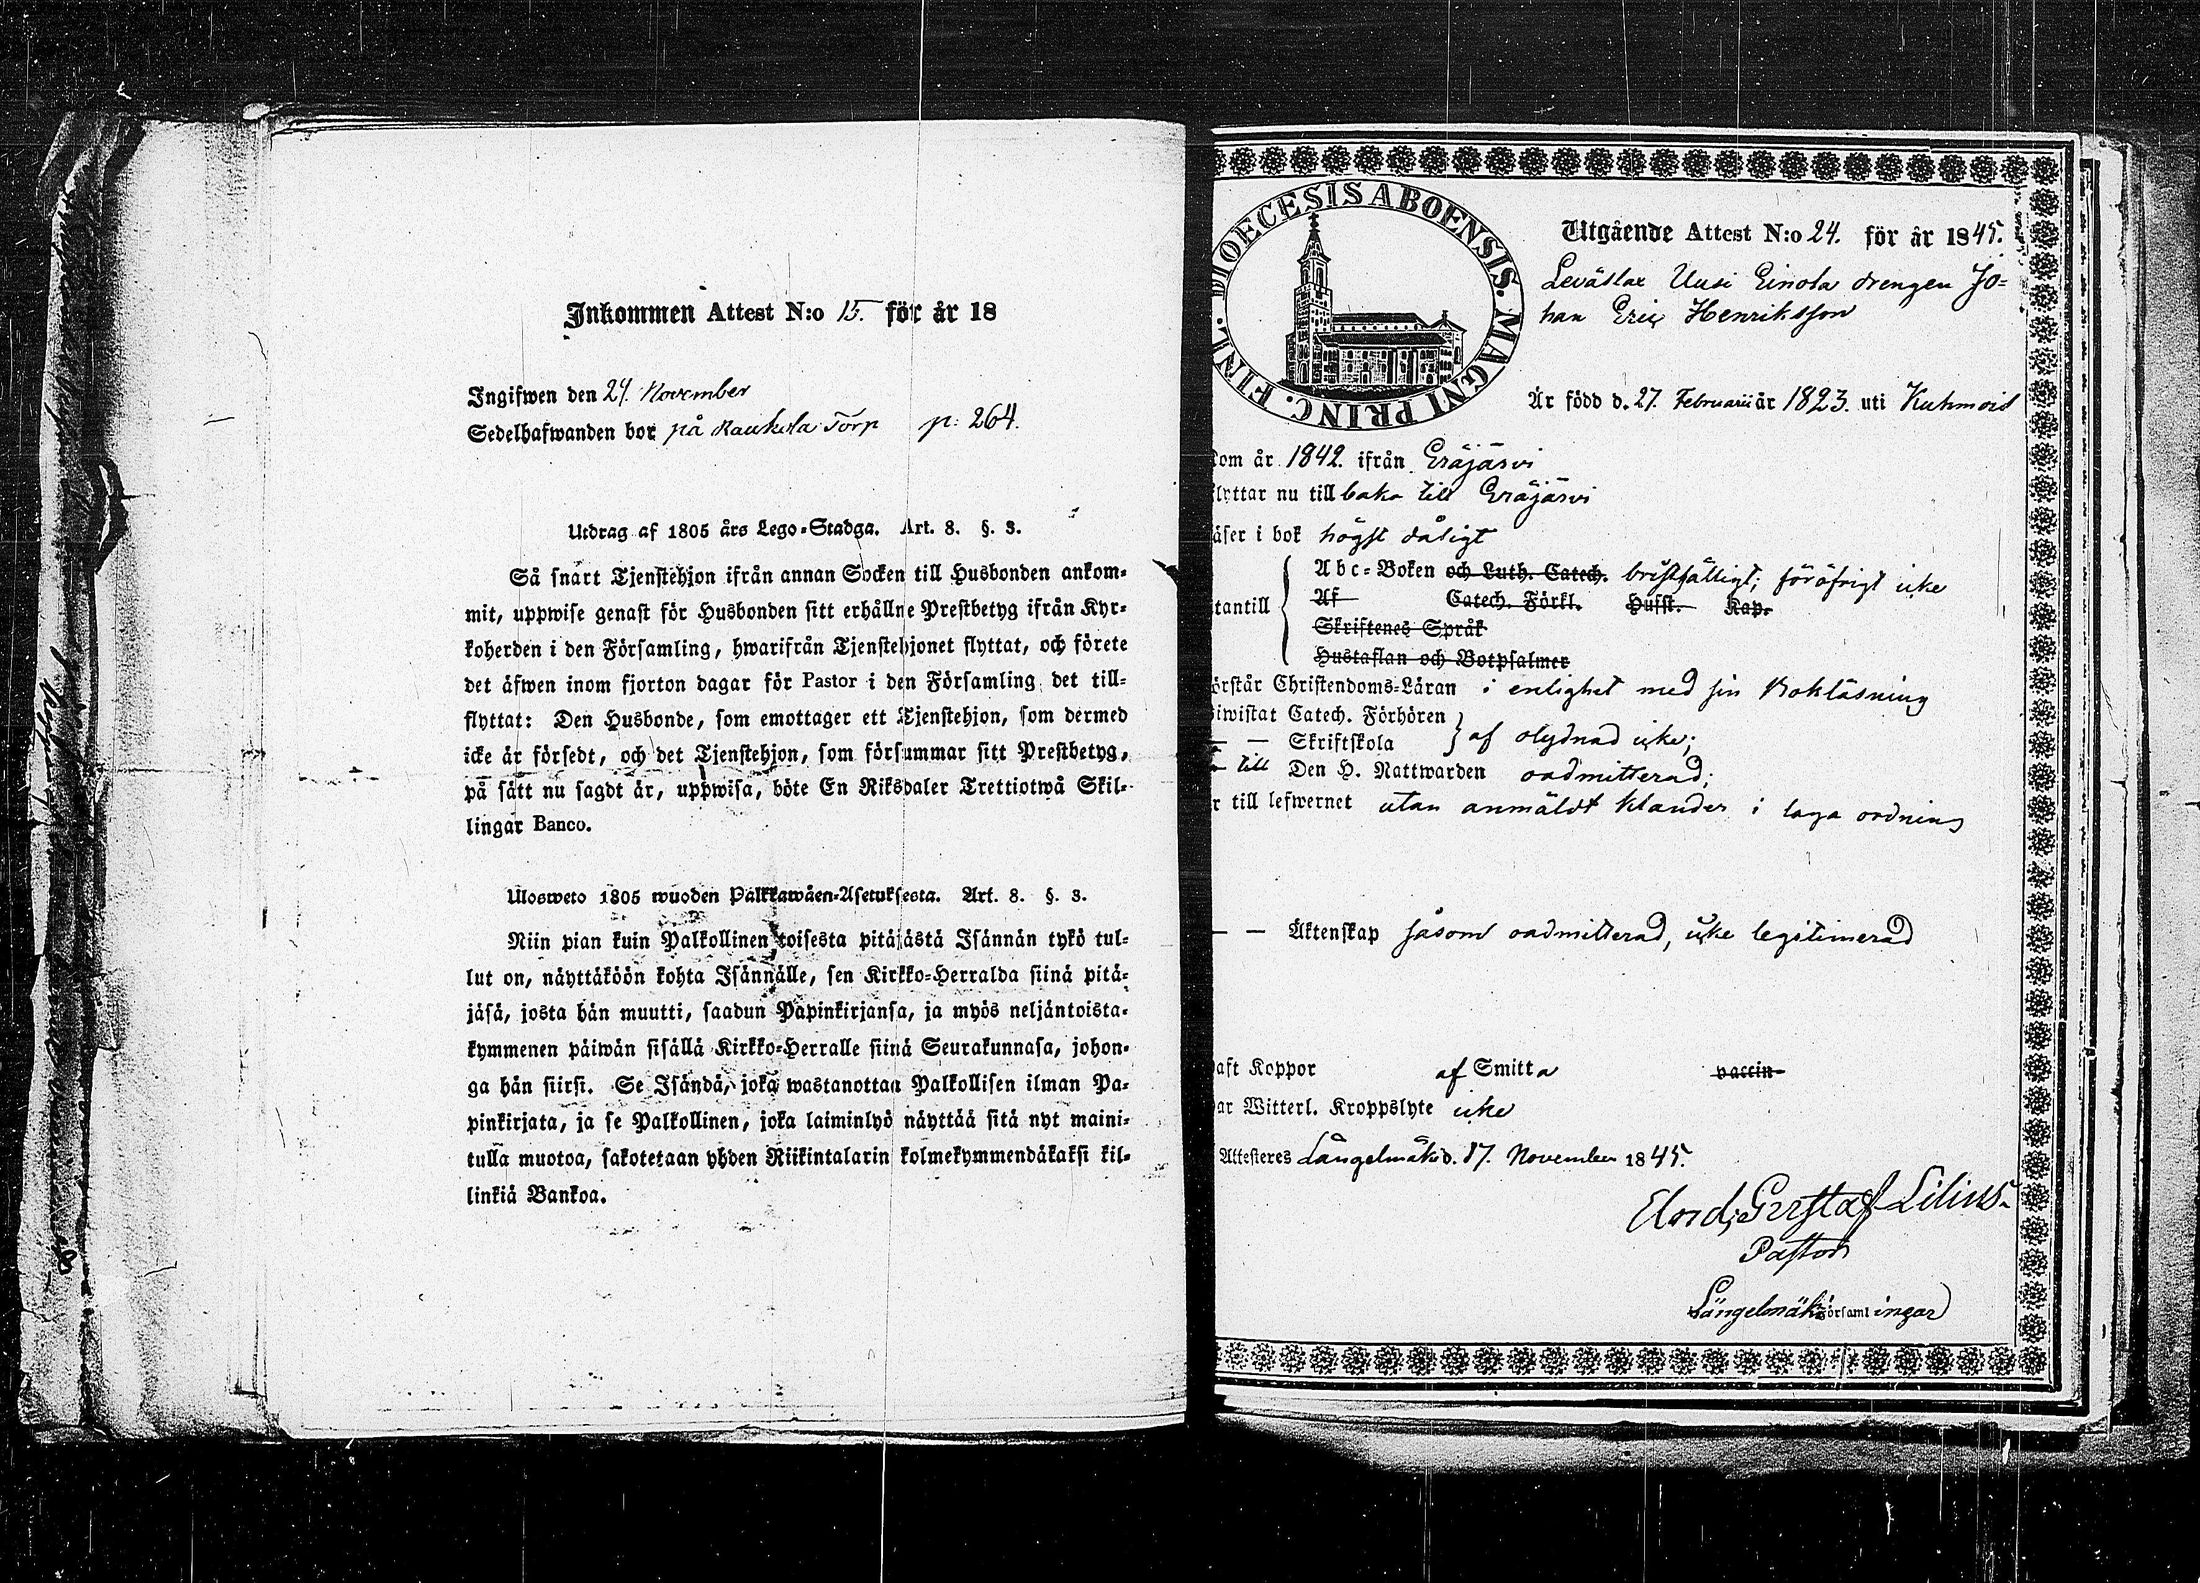 Inkommen Attest N:o 15. för år 18
Ingifwen den 24 November
Sedelhafwanden bor på Raukola Torp p: 264.
Utdrag af 1805 års Lego-Stadga. Art. 8. §. 3.
Så snart Tjenstehjon ifrån annan Socken till Husbonden ankom-
mit, uppwise genast för Husbonden sitt erhållne Prestbetyg ifrån Kyr-
koherden i den Församling, hwarifrån Tjenstehjonet flyttat, och förete
det äfwen inom fjorton dagar för Pastor i den Församling det till-
flyttat: Den Husbonde, som emottager ett Tjenstehjon, som dermed
icke är försedt, och det Tjenstehjon, som försummar sitt Prestbetyg,
på sätt nu sagdt är, uppwisa, böte En Riksdaler Trettiotwå Skil-
lingar Banco.
Ulosweto 1805 wuoden Palkkawäen-Asetuksesta. Art. 8. §. 3.
Niin pian kuin Palkollinen toisesta pitäjästä Isännän tykö tul-
lut on, näyttäköön kohta Isännälle, sen Kirkko-Herralda siinä pitä-
jäsä, josta hän muutti, saadun Papinkirjansa, ja myös neljäntoista-
kymmenen päiwän sisällä Kirkko-Herralle siinä Seurakunnasa, johon-
ga hän siirsi. Se Isändä, joka wastanottaa Palkollisen ilman Pa-
pinkirjata, ja se Palkollinen, joka laiminlyö näyttää sitä nyt maini-
tulla muotoa, sakotetaan yhden Riikintalarin kolmekymmendäkaksi kil-
linkiä Bankoa.
DIOECESIS ABOENSIS. MAGNI PRINC. FINL.
Utgående Attest N:o 24. för år 1845.
Leväslax Uusi Einola drengen Jo-
han Eric Henriksson
Är född d. 27. Februarii år 1823. uti Kuhmois
kom år 1842. ifrån Eräjärvi
flyttar nu tillbaka till Eräjärvi
läser i bok högst dåligt
Abc-Boken och Luth. Catech. bristfälligt; föröfrigt icke
utantill Af Catech. Förkl. Husst. Kap.
Skriftenes Språk
Hustaflan och Botpsalmer
örstår Christendoms-Läran i enlighet med sin Bokläsning
iwistat Catech. Förhören
— — Skriftskola af olydnad icke;
— till Den H. Nattwarden oadmitterad;
r till lefwernet utan anmäldt klander i laga ordning
— — Äktenskap såsom oadmitterad, icke legitimerad
haft Koppor af Smitta vaccin
har Witterl. Kroppslyte icke
Attesteres Längelmäki d. 17. November 1845.
And. Gustaf Lilius
Pastor
Längelmäki församlingar